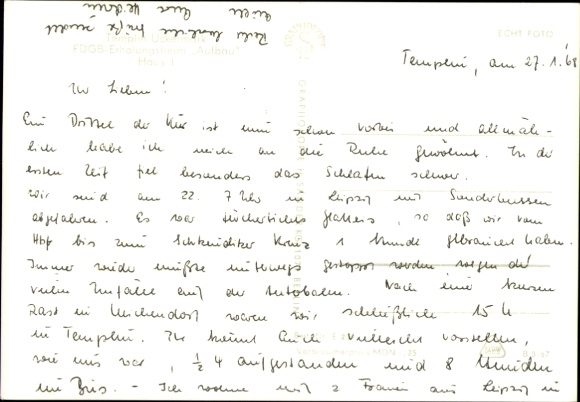 Templin, am 27.1.68
Ihr Lieben!
Ein Drittel der Kur ist nun schon vorbei und allmäh-
lich habe ich mich an die Ruhe gewöhnt. In der
ersten Zeit fiel besonders das Schlafen schwer.
Wir sind am 22. 7 Uhr in Leipzig mit Sonderbussen
abgefahren. Es war fürchterliches Glatteis, so daß wir vom
Hbf bis zum Schkeuditzer Kreuz 1 Stunde gebraucht haben.
Immer wieder mußte unterwegs gestoppt werden wegen der
vielen Unfälle auf der Autobahn. Nach einer kurzen
Rast in Michendorf waren wir schließlich 15 h
in Templin. Ihr könnt Euch vielleicht vorstellen,
wie uns war, ½ 4 aufgestanden und 8 Stunden
im Bus. - Ich wohne mit 2 Frauen aus Leipzig in
ECHT FOTO
FDGB-Erholungsheim "Aufbau"
Euch